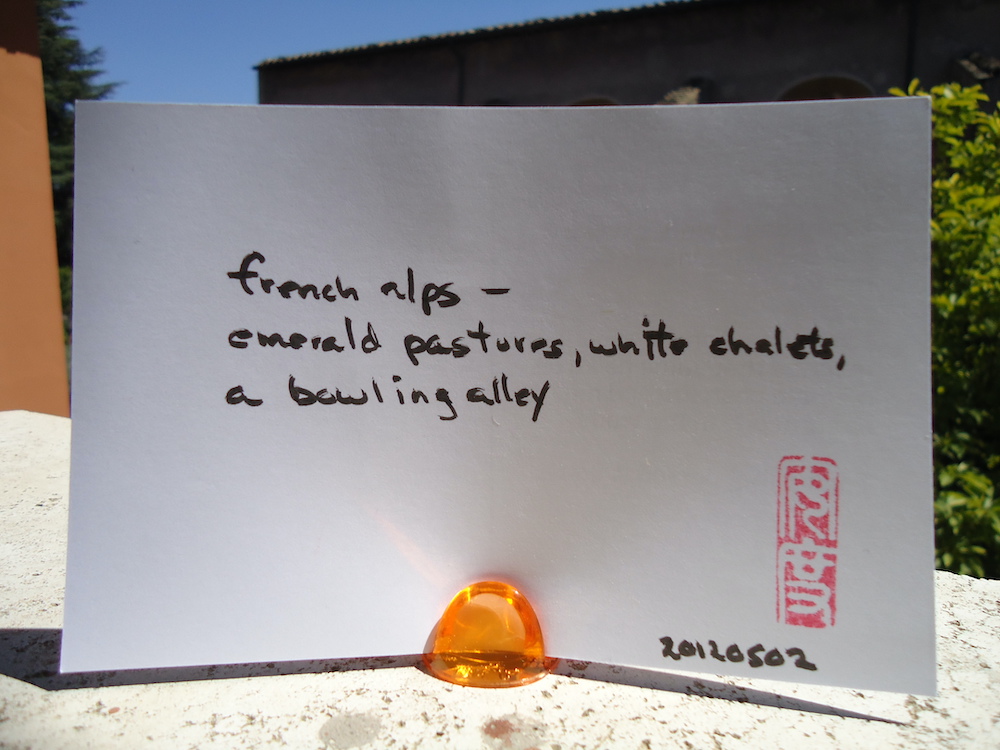 french alps –
emerald pastures, white chalets,
a bowling alley
20120502